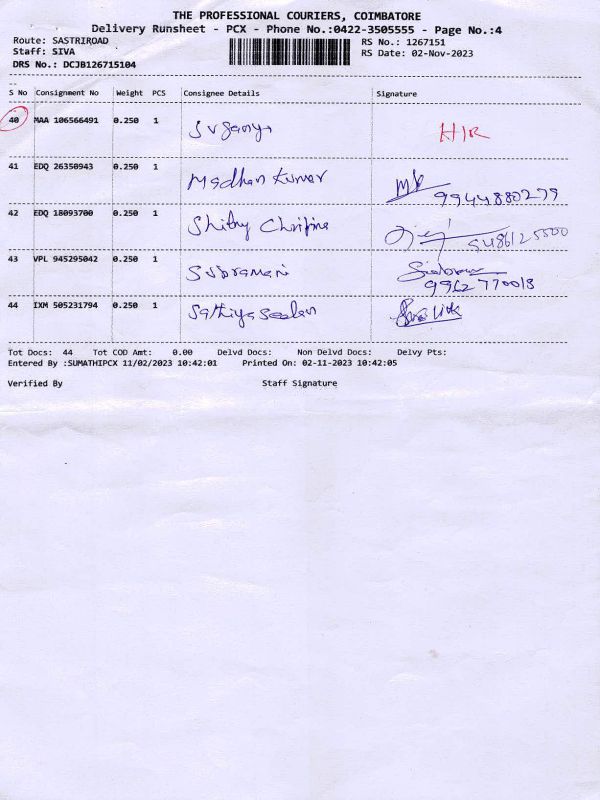 THE PROFESSIONAL COURIERS, COIMBATORE
Delivery Runsheet - PCX - Phone No.:0422-3505555 - Page No.:4
Route: SASTRIROAD RS No.: 1267151
Staff: SIVA RS Date: 02-Nov-2023
DRS No.: DCJB126715104
S No Consignment No Weight PCS Consignee Details Signature
40 MAA 106566491 0.250 1
41 EDQ 26350943 0.250 1 Madhan Kumar 9944880279
42 EDQ 18093700 0.250 1
43 VPL 945295042 0.250 1 Subramani 9962770018
44 IXM 505231794 0.250 1
Tot Docs: 44 Tot COD Amt: 0.00 Delvd Docs: Non Delvd Docs: Delvy Pts:
Entered By :SUMATHIPCX 11/02/2023 10:42:01 Printed On: 02-11-2023 10:42:05
Verified By Staff Signature